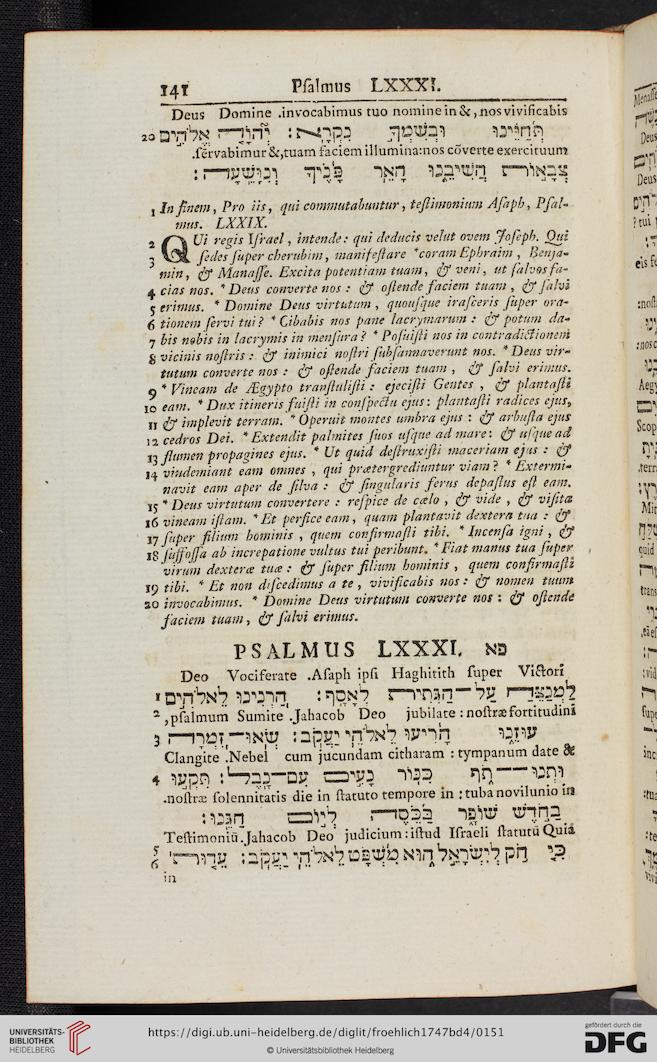 141 Psalmus LXXXI.
Deus Domine .invocabimus tuo nomine in &, nos vivificabis
תְּחַיֵּינוּ וּבְשִׁמְךָ נִקְרָא : יְהוָה אֱלֹהִים 20
.servabimur &,tuam faciem illumina:nos cōverte exercituum
צְבָאוֹת הֲשִׁיבֵנוּ הָאֵר פָּנֶיךָ וְנִוָּשֵׁעָה :
1 In finem, Pro iis, qui commutabuntur, testimonium Asaph, Psal-
mus. LXXIX.
2 QUi regis Israel, intende: qui deducis velut ovem Joseph. Qui
3 sedes super cherubim, manifestare * coram Ephraim, Benja-
min, & Manasse. Excita potentiam tuam, & veni, ut salvos fa-
4 cias nos. * Deus converte nos : & ostende faciem tuam, & salvi
5 erimus. * Domine Deus virtutum, quousque irasceris super ora-
6 tionem servi tui? * Cibabis nos pane lacrymarum : & potum da-
7 bis nobis in lacrymis in mensura? * Posuisti nos in contradictionem
8 vicinis nostris : & inimici nostri subsannaverunt nos. * Deus vir-
tutum converte nos : & ostende faciem tuam, & salvi erimus.
9 * Vineam de Ægypto transtulisti : ejecisti Gentes, & plantasti
10 eam. * Dux itineris fuisti in conspectu ejus: plantasti radices ejus,
11 & implevit terram. * Operuit montes umbra ejus : & arbusta ejus
12 cedros Dei. * Extendit palmites suos usque ad mare: & usque ad
13 flumen propagines ejus. * Ut quid destruxisti maceriam ejus : &
14 vindemiant eam omnes, qui prætergrediuntur viam? * Extermi-
navit eam aper de silva : & singularis ferus depastus est eam.
15 * Deus virtutum convertere : respice de cælo, & vide, & visita
16 vineam istam. * Et perfice eam, quam plantavit dextera tua : &
17 super filium hominis, quem confirmasti tibi. * Incensa igni, &
18 suffossa ab increpatione vultus tui peribunt. * Fiat manus tua super
virum dexteræ tuæ : & super filium hominis, quem confirmasti
19 tibi. * Et non discedimus a te, vivificabis nos : & nomen tuum
20 invocabimus. * Domine Deus virtutum converte nos : & ostende
faciem tuam, & salvi erimus.
PSALMUS LXXXI. פא
Deo Vociferate .Asaph ipsi Haghitith super Victori
לַמְנַצֵּחַ עַל־הַגִּתִּית לְאָסָף : הַרְנִינוּ לֵאלֹהִים 1
2 ,psalmum Sumite .Jahacob Deo jubilate : nostræ fortitudini
עוּזֵּנוּ הָרִיעוּ לֵאלֹהֵי יַעֲקֹב : שְׂאוּ־זִמְרָה 3
Clangite .Nebel cum jucundam citharam : tympanum date &
וּתְנוּ־תֹף כִּנּוֹר נָעִים עִם־נָבֶל : תִּקְעוּ 4
.nostræ solennitatis die in statuto tempore in : tuba novilunio in
בַחֹדֶשׁ שׁוֹפָר בַּכֵּסֶה לְיוֹם חַגֵּנוּ :
Testimoniū.Jahacob Deo judicium : istud Israeli statutū Quia
כִּי חֹק לְיִשְׂרָאֵל הוּא מִשְׁפָּט לֵאלֹהֵי יַעֲקֹב : עֵדוּת 5 6
in
UNIVERSITÄTS-
BIBLIOTHEK
HEIDELBERG
https://digi.ub.uni-heidelberg.de/diglit/froehlich1747bd4/0151
© Universitätsbibliothek Heidelberg
gefördert durch die
DFG